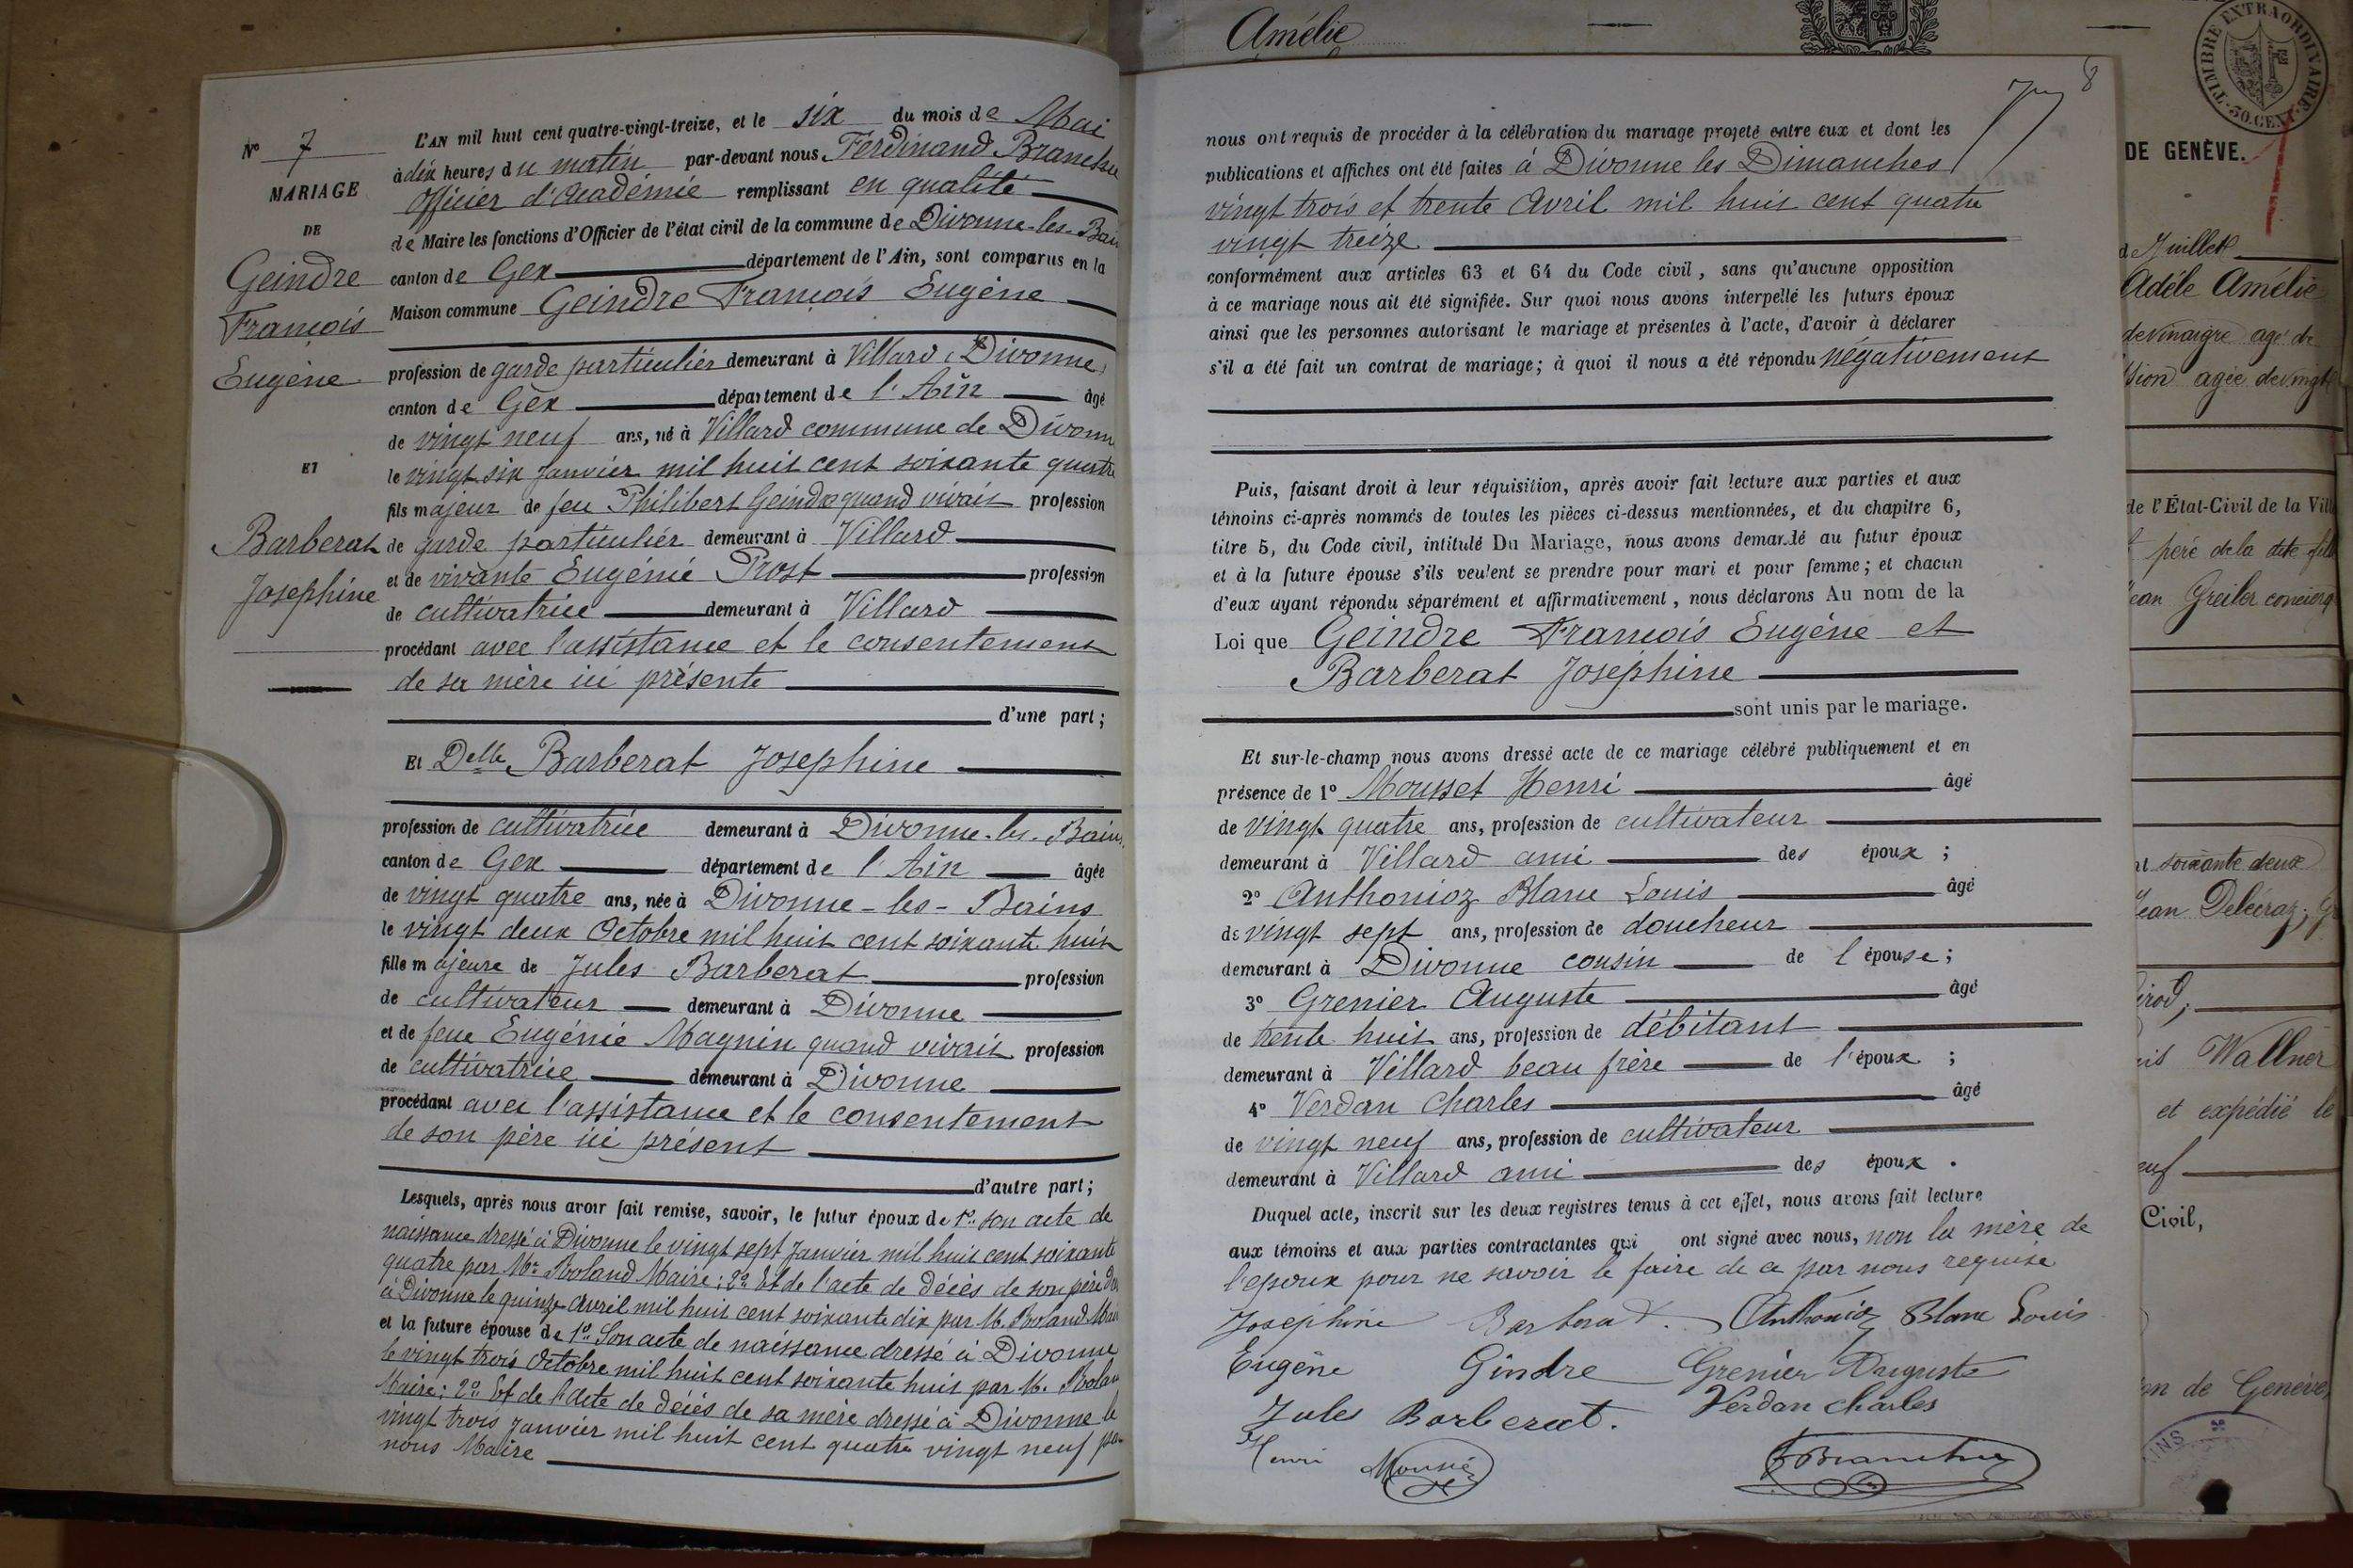 Nº 7
MARIAGE
DE
Geindre
François
Eugène
ET
Barberat
Josephine
L'AN mil huit cent quatre-vingt-treize, et le six du mois de Mai
à dix heures du matin par-devant nous Ferdinand Branchu
Officier d'Académie remplissant en qualité
de Maire les fonctions d'Officier de l'état civil de la commune de Divonne-les-Bains
canton de Gex département de l'Ain, sont comparus en la
Maison commune Geindre François Eugène
profession de garde particulier demeurant à Villard (Divonne)
canton de Gex département de l'Ain âgé
de vingt neuf ans, né à Villard commune de Divonne
le vingt six Janvier mil huit cent soixante quatre
fils majeur de feu Philibert Geindre quand vivait profession
de garde particulier demeurant à Villard
et de vivante Eugénie Prost profession
de cultivatrice demeurant à Villard
procédant avec l'assistance et le consentement
de sa mère ici présente
d'une part;
Et Delle Barberat Josephine
profession de cultivatrice demeurant à Divonne-les-Bains
canton de Gex département de l'Ain âgée
de vingt quatre ans, née à Divonne-les-Bains
le vingt deux Octobre mil huit cent soixante huit
fille majeure de Jules Barberat profession
de cultivateur demeurant à Divonne
et de feue Eugénie Magnin quand vivait profession
de cultivatrice demeurant à Divonne
procédant avec l'assistance et le consentement
de son père ici présent
d'autre part;
Lesquels, après nous avoir fait remise, savoir, le futur époux de 1º son acte de
naissance dressé à Divonne le vingt sept Janvier mil huit cent soixante
quatre par Mr Roland Maire; 2º Et de l'acte de décès de son père
à Divonne le quinze Avril mil huit cent soixante dix par M. Roland Maire
et la future épouse de 1º Son acte de naissance dressé à Divonne
le vingt trois Octobre mil huit cent soixante huit par M. Roland
Maire; 2º Et de l'acte de décès de sa mère dressé à Divonne le
vingt trois Janvier mil huit cent quatre vingt neuf par
nous Maire
Amélie
8
nous ont requis de procéder à la célébration du mariage projeté entre eux et dont les
publications et affiches ont été faites à Divonne les Dimanches
vingt trois et trente Avril mil huit cent quatre
vingt treize
conformément aux articles 63 et 64 du Code civil, sans qu'aucune opposition
à ce mariage nous ait été signifiée. Sur quoi nous avons interpellé les futurs époux
ainsi que les personnes autorisant le mariage et présentes à l'acte, d'avoir à déclarer
s'il a été fait un contrat de mariage; à quoi il nous a été répondu négativement
Puis, faisant droit à leur réquisition, après avoir fait lecture aux parties et aux
témoins ci-après nommés de toutes les pièces ci-dessus mentionnées, et du chapitre 6,
titre 5, du Code civil, intitulé Du Mariage, nous avons demandé au futur époux
et à la future épouse s'ils veulent se prendre pour mari et pour femme; et chacun
d'eux ayant répondu séparément et affirmativement, nous déclarons Au nom de la
Loi que Geindre François Eugène et
Barberat Josephine
sont unis par le mariage.
Et sur-le-champ nous avons dressé acte de ce mariage célébré publiquement et en
présence de 1º Mousset Henri âgé
de vingt quatre ans, profession de cultivateur
demeurant à Villard ami des époux;
2º Anthonioz Blanc Louis âgé
de vingt sept ans, profession de doucheur
demeurant à Divonne cousin de l'épouse;
3º Grenier Auguste âgé
de trente huit ans, profession de débitant
demeurant à Villard beau frère de l'époux;
4º Verdan Charles âgé
de vingt neuf ans, profession de cultivateur
demeurant à Villard ami des époux.
Duquel acte, inscrit sur les deux registres tenus à cet effet, nous avons fait lecture
aux témoins et aux parties contractantes qui ont signé avec nous, non la mère de
l'époux pour ne savoir le faire de ce par nous requise
Joséphine Barberat. Anthonioz Blanc Louis
Eugène Gindre Grenier Auguste
Jules Barberat. Verdan Charles
Henri Branchu
TIMBRE EXTRAORDINAIRE
50. CENT.
DE GENÈVE.
de Juillet
Adèle Amélie
de vinaigre agé de
agée de vingt
de l'État-Civil de la Vill
père de la dite fille
Jean Greiler concierg
soixante deux
Jean Delécraz;
Wallner
et expédié le
Civil,
de Genève,